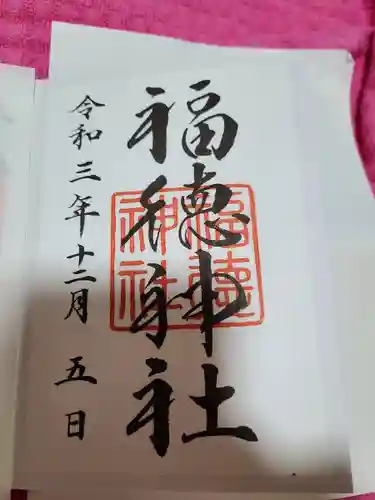 福徳神社
令和三年十二月五日
福徳神社